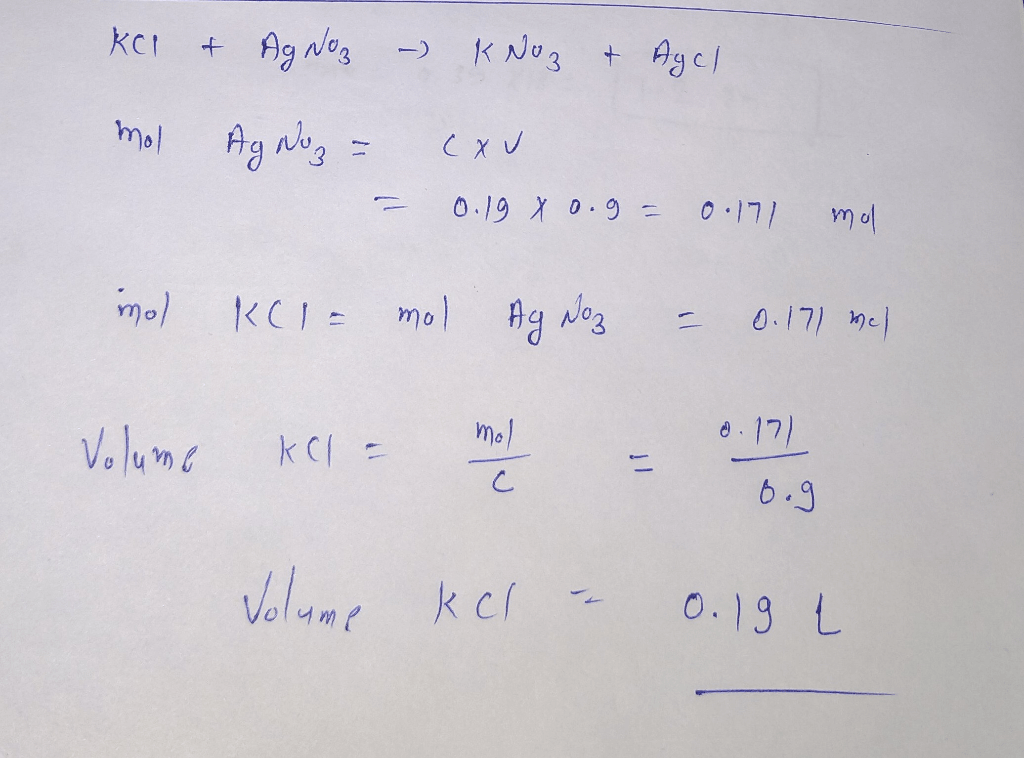 KCl + AgNO3 → KNO3 + Agcl
mol AgNO3 = C x V
= 0.19 x 0.9 = 0.171 mol
mol KCl = mol AgNO3 = 0.171 mol
Volume KCl = mol/C = 0.171/0.9
Volume KCl = 0.19 L